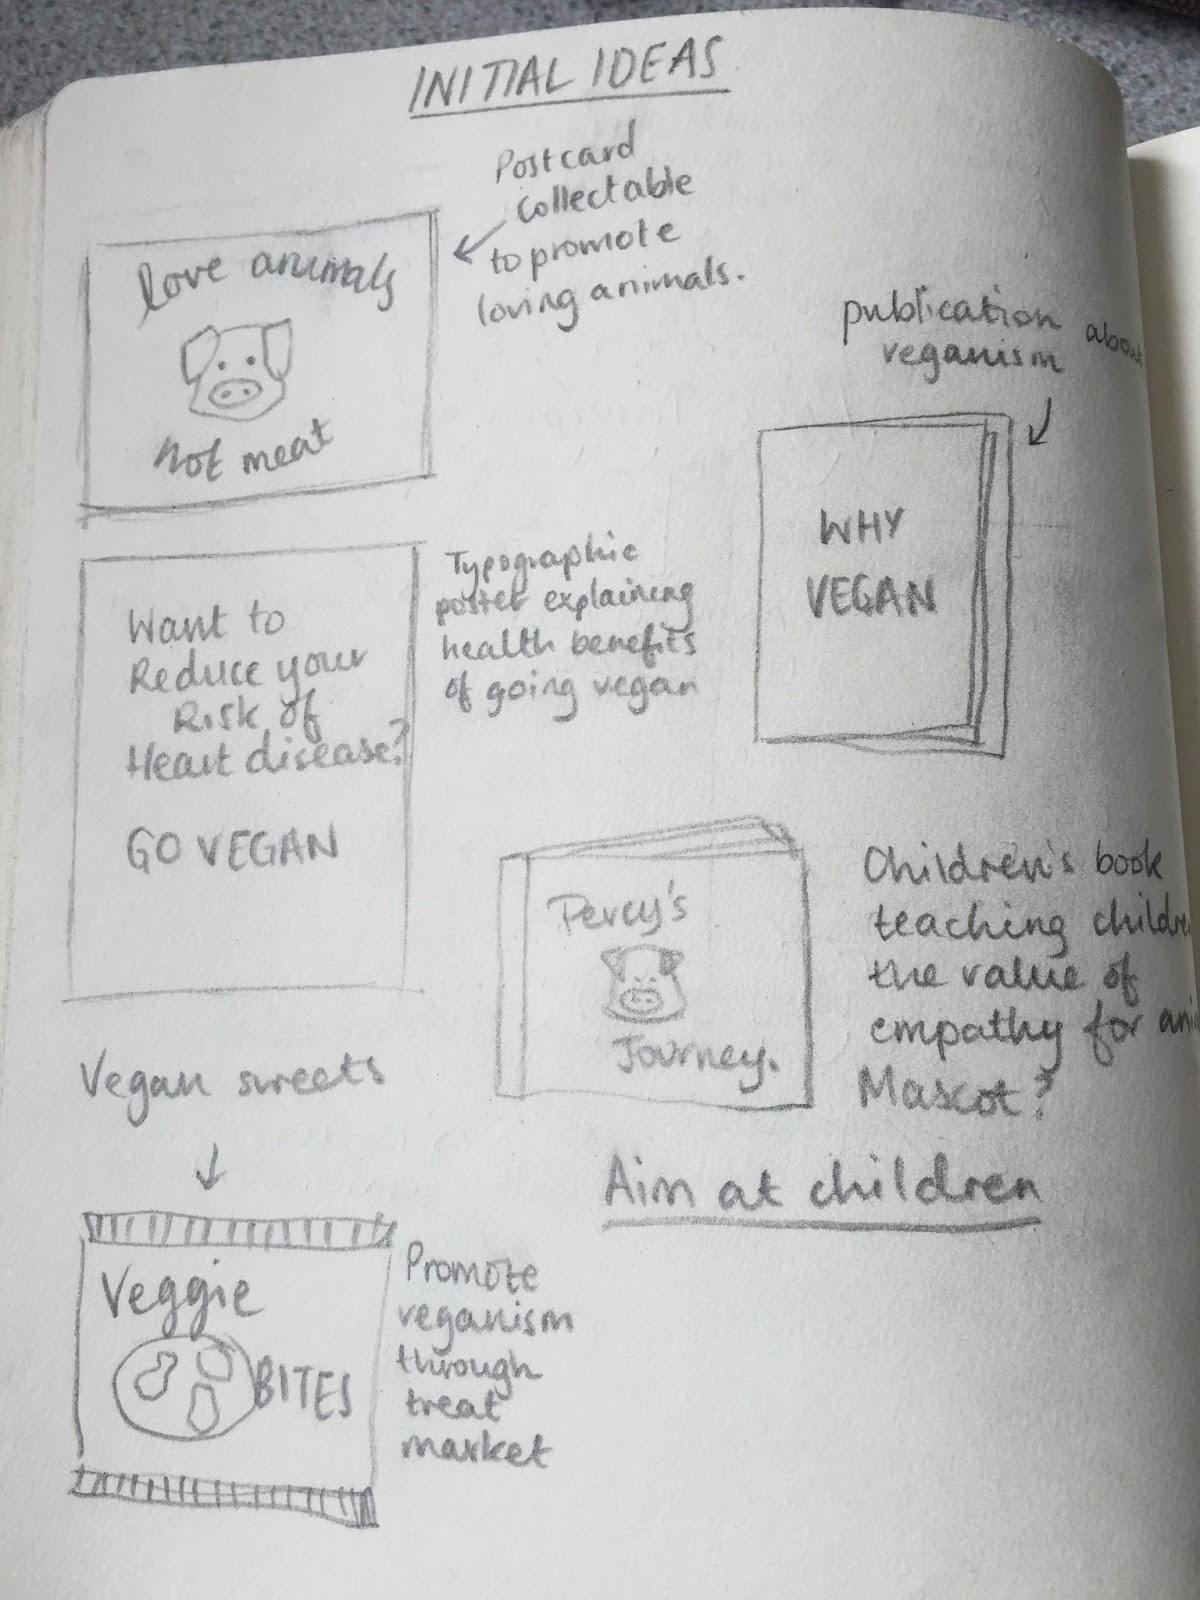 INITIAL IDEAS
Postcard
collectable
to promote
loving animals.
love animals
not meat
publication
veganism
WHY
VEGAN
Typographic
poster explaining
health benefits
of going vegan
Want to
Reduce your
Risk of
Heart disease?
GO VEGAN
Percy's
Journey.
Children's book
teaching
the value of
empathy for
Mascot?
Aim at children
Vegan sweets
Veggie
BITES
Promote
veganism
through
treat
market